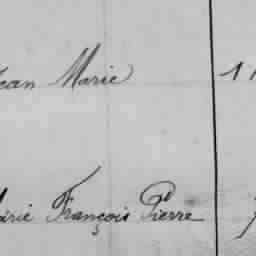 Jean Marie 11
Marie François Pierre